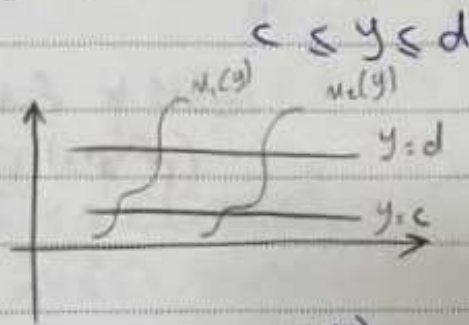 c ≤ y ≤ d
x₁(y) x₂(y)
y = d
y = c